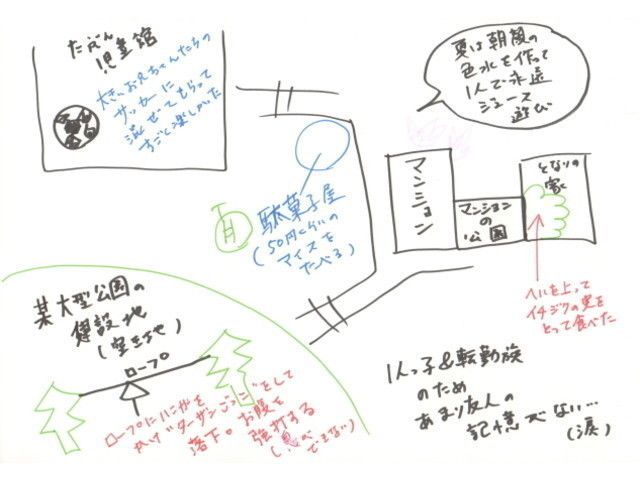 たぶん
児童館
大きいお兄ちゃんたちの
サッカーに
混ぜてもらって
すごく楽しかった
夏は朝顔の
色水を作って
1人で永遠
ジュース
遊び
マンション
マンション
の
公園
となりの
家
駄菓子屋
(50円くらいの
アイスを
たべる)
へいを上って
イチジクの実を
とって食べた
某大型公園の
建設地
(空き地)
ロープ
ロープにハンガーを
かけ"ターザンごっこ"をして
落下。お腹を
強打する
(息ができない)
1人っ子&転勤族
のため
あまり友人の
記憶がない…
(涙)